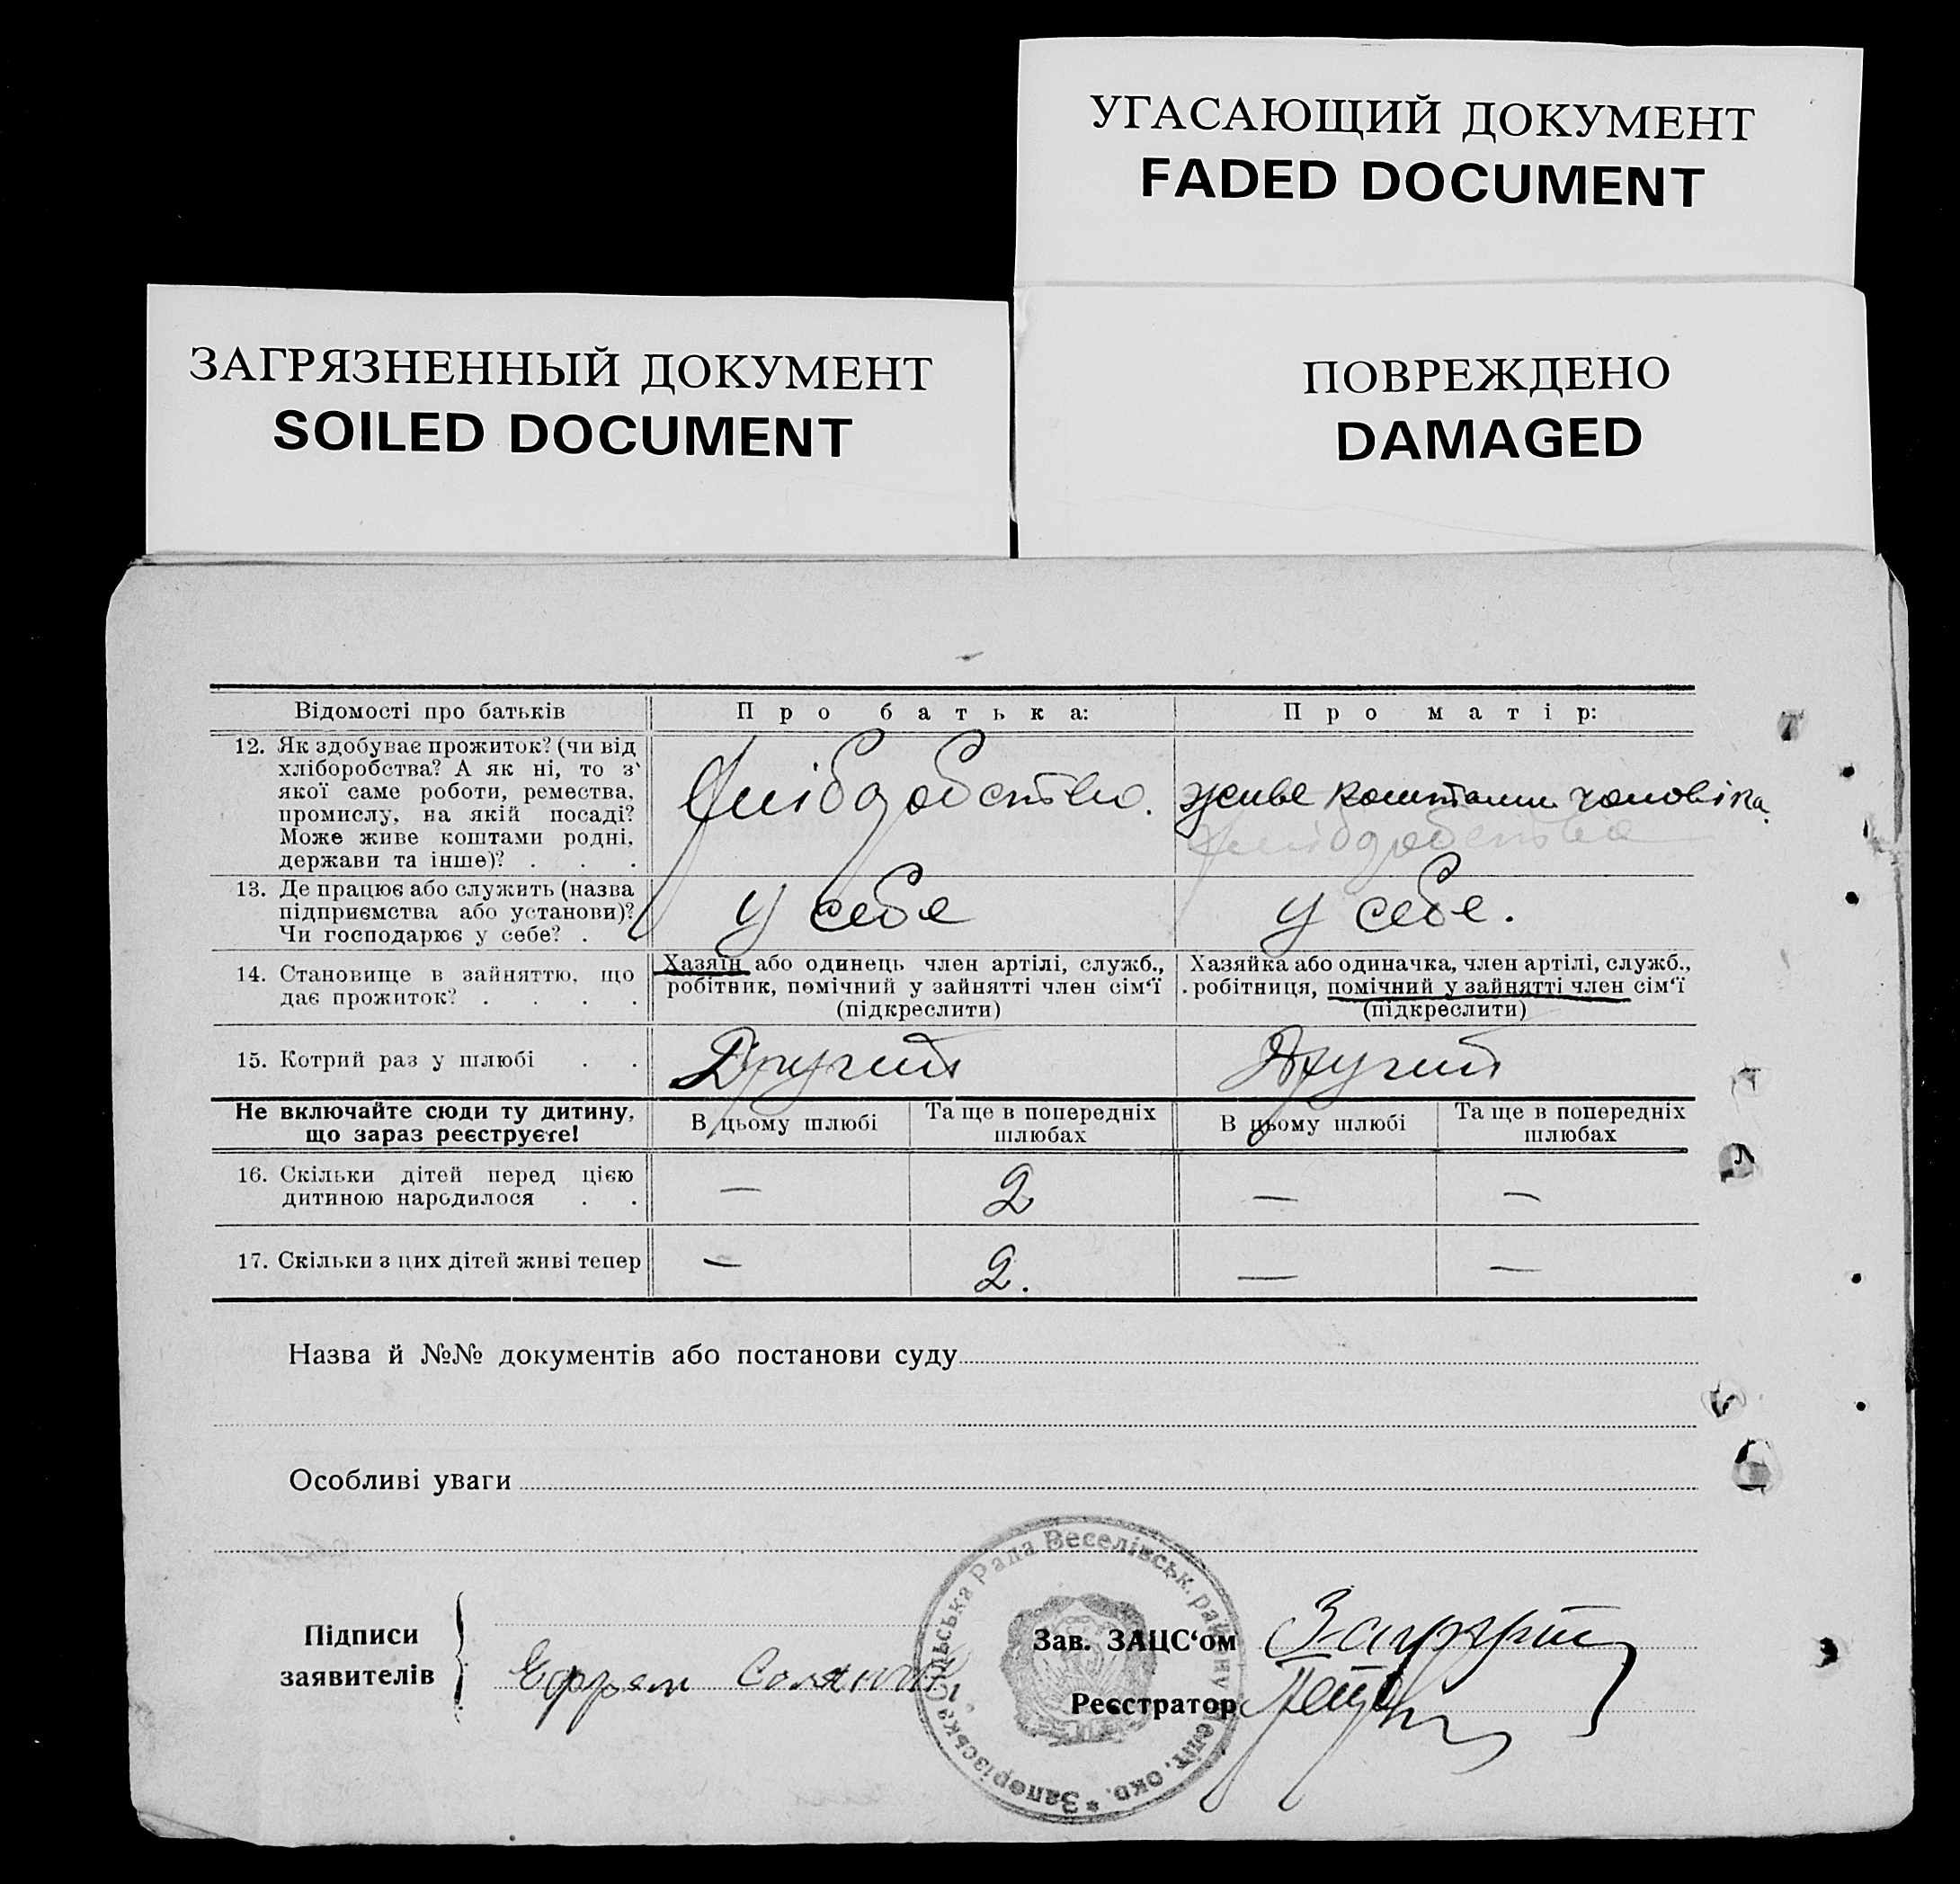 УГАСАЮЩИЙ ДОКУМЕНТ
FADED DOCUMENT
ЗАГРЯЗНЕННЫЙ ДОКУМЕНТ
SOILED DOCUMENT
ПОВРЕЖДЕНО
DAMAGED
Відомості про батьків
Про батька:
Про матір:
12. Як здобуває прожиток? (чи від
хліборобства? А як ні, то з‛
якої саме роботи, ремества,
промислу, на якій посаді?
Може живе коштами родні,
держави та інше)? . . .
живе коштами чоловіка
13. Де працює або служить (назва
підприємства або установи)?
Чи господарює у себе? .
у себе
у себе.
14. Становище в зайняттю, що
дає прожиток? . . . .
Хазяїн або одинець член артілі, служб.,
робітник, помічний у зайнятті член сім‛ї
(підкреслити)
Хазяйка або одиначка, член артілі, служб.,
робітниця, помічний у зайнятті член сім‛ї
(підкреслити)
15. Котрий раз у шлюбі . .
Другий
Другий
Не включайте сюди ту дитину,
що зараз реєструєте!
В цьому шлюбі
Та ще в попередніх
шлюбах
В цьому шлюбі
Та ще в попередніх
шлюбах
16. Скільки дітей перед цією
дитиною народилося . .
— 2 — —
17. Скільки з цих дітей живі тепер
— 2. — —
Назва й №№ документів або постанови суду
Особливі уваги
Підписи
заявителів
Зав. ЗАЦС‛ом
Реєстратор
Запорізська Сільська Рада Веселівськ. району Меліт. окр. *